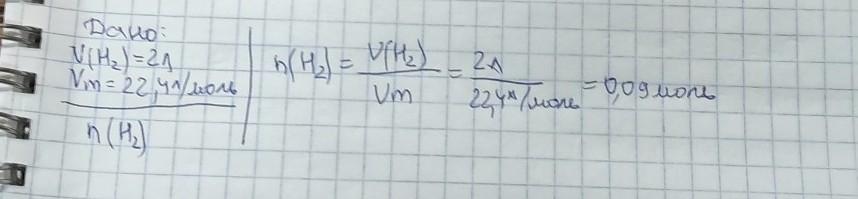 Дано:
V(H₂)=2л
Vm=22,4л/моль
n(H₂)
n(H₂) = V(H₂)/Vm = 2л/22,4л/моль = 0,09моль